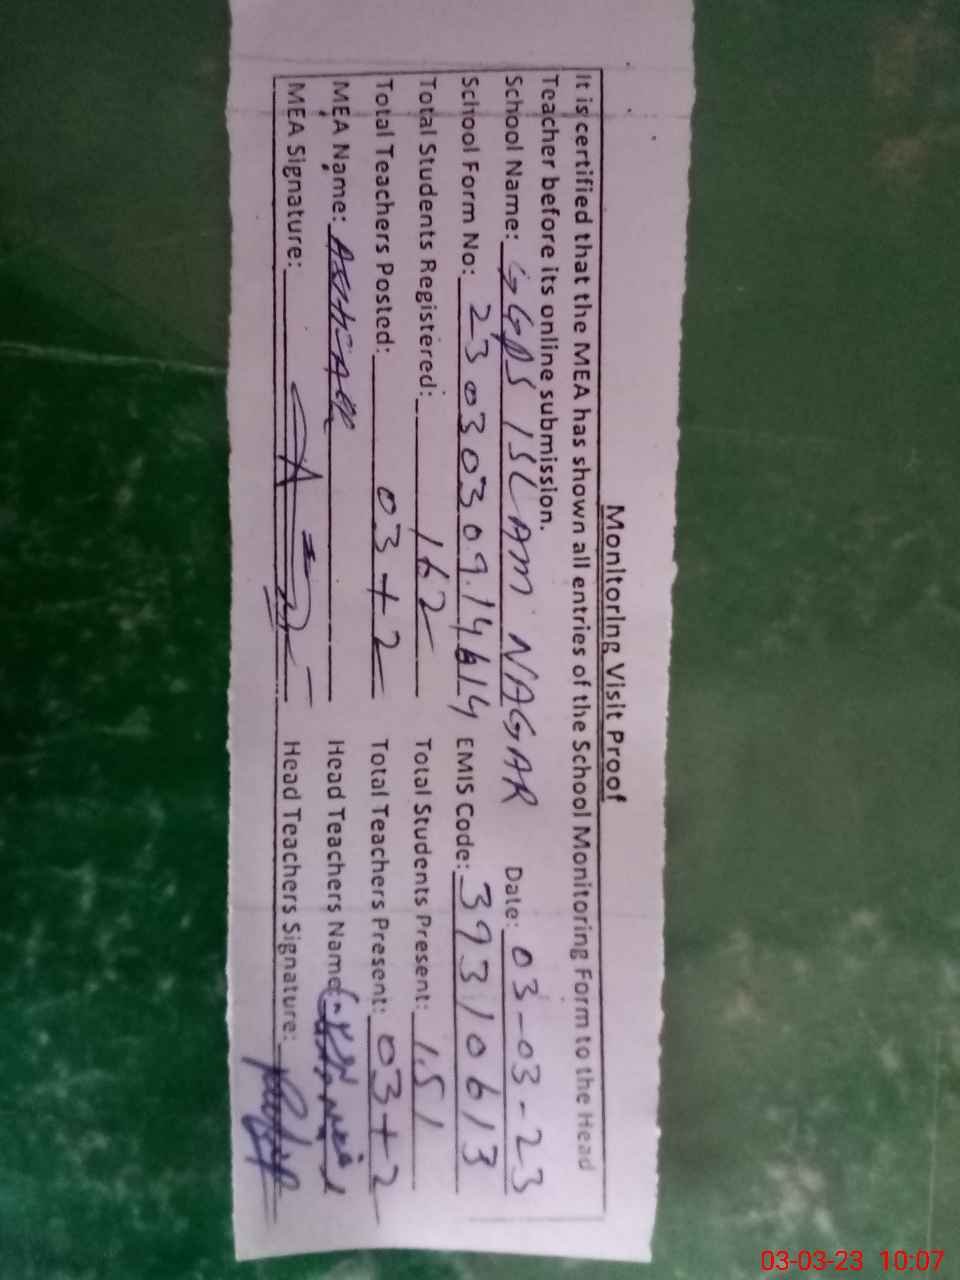 Monitoring Visit Proof
It is certified that the MEA has shown all entries of the School Monitoring Form to the Head
Teacher before its online submission.
School Name: GGPS ISLAM NAGAR Date: 03-03-23
School Form No: 23030309.14614 EMIS Code: 39310613
Total Students Registered: 162 Total Students Present: 151
Total Teachers Posted: 03+2 Total Teachers Present: 03+2
MEA Name: Head Teachers Name:
MEA Signature: Head Teachers Signature:
03-03-23 10:07